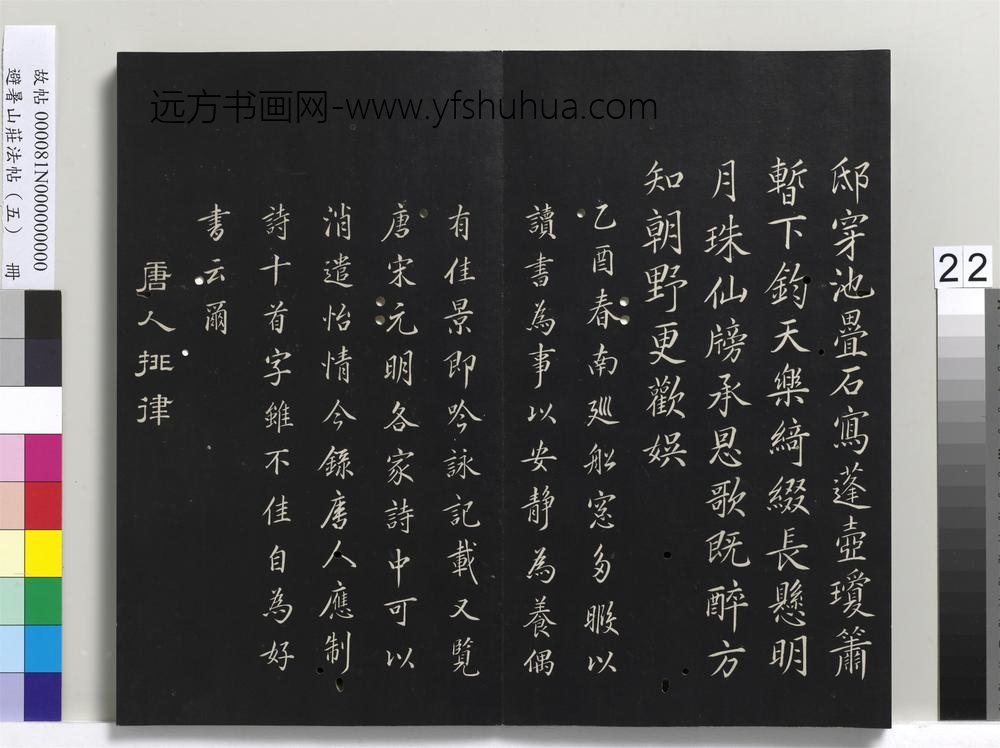 远方书画网-www.yfshuhua.com
邸穿池疊石寫蓬壺瓊簫
暫下鈞天樂綺綴長懸明
月珠仙牓承恩歌既醉方
知朝野更歡娛
乙酉春南廵船窓多暇以
讀書為事以安靜為養偶
有佳景即吟詠記載又覽
唐宋元明各家詩中可以
消遣怡情今錄唐人應制
詩十首字雖不佳自為好
書云爾
唐人排律
故帖000081N000000000
避暑山莊法帖（五） 冊
22